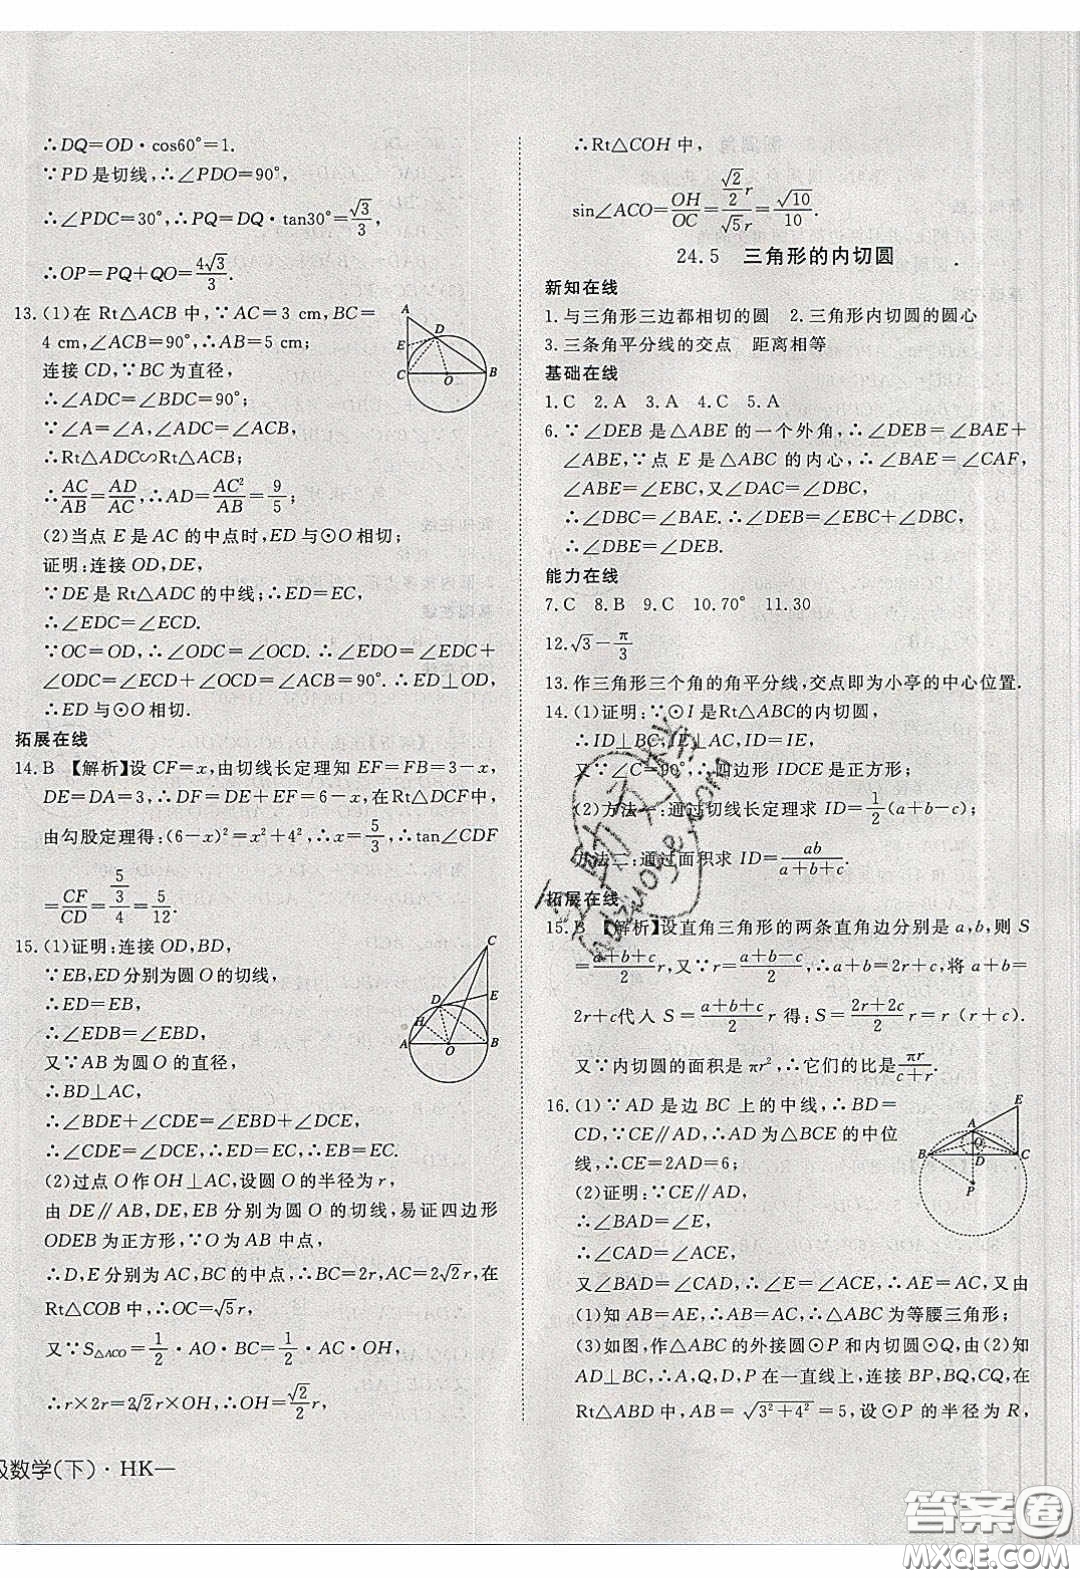 ∴DQ=OD·cos60°=1.
∵PD是切线,∴∠PDO=90°,
∴∠PDC=30°,∴PQ=DQ·tan30°=√3/3,
∴OP=PQ+QO=4√3/3.
13.(1)在Rt△ACB中,∵AC=3 cm,BC=
4 cm,∠ACB=90°,∴AB=5 cm;
连接CD,∵BC为直径,
∴∠ADC=∠BDC=90°;
∵∠A=∠A,∠ADC=∠ACB,
∴Rt△ADC∽Rt△ACB;
∴AC/AB=AD/AC,∴AD=AC²/AB=9/5;
(2)当点E是AC的中点时,ED与⊙O相切;
证明:连接OD,DE,
∵DE是Rt△ADC的中线;∴ED=EC,
∴∠EDC=∠ECD.
∵OC=OD,∴∠ODC=∠OCD.∴∠EDO=∠EDC+
∠ODC=∠ECD+∠OCD=∠ACB=90°.∴ED⊥OD,
∴ED与⊙O相切.
拓展在线
14.B 【解析】设CF=x,由切线长定理知EF=FB=3-x,
DE=DA=3,∴DF=DE+EF=6-x,在Rt△DCF中,
由勾股定理得:(6-x)²=x²+4²,∴x=5/3,∴tan∠CDF
=CF/CD=(5/3)/4=5/12.
15.(1)证明:连接OD,BD,
∵EB,ED分别为圆O的切线,
∴ED=EB,
∴∠EDB=∠EBD,
又∵AB为圆O的直径,
∴BD⊥AC,
∴∠BDE+∠CDE=∠EBD+∠DCE,
∴∠CDE=∠DCE,∴ED=EC,∴EB=EC.
(2)过点O作OH⊥AC,设圆O的半径为r,
由DE∥AB,DE,EB分别为圆O的切线,易证四边形
ODEB为正方形,∵O为AB中点,
∴D,E分别为AC,BC的中点,∴BC=2r,AC=2√2r,在
Rt△COB中,∴OC=√5r,
又∵S△ACO=1/2·AO·BC=1/2·AC·OH,
∴r×2r=2√2r×OH,∴OH=√2/2r,
∴Rt△COH中,
sin∠ACO=OH/OC=(√2/2r)/(√5r)=√10/10.
24.5 三角形的内切圆
新知在线
1.与三角形三边都相切的圆 2.三角形内切圆的圆心
3.三条角平分线的交点 距离相等
基础在线
1.C 2.A 3.A 4.C 5.A
6.∵∠DEB是△ABE的一个外角,∴∠DEB=∠BAE+
∠ABE,∵点E是△ABC的内心,∴∠BAE=∠CAF,
∠ABE=∠EBC,又∠DAC=∠DBC,
∴∠DBC=∠BAE.∴∠DBC+∠EBC=∠DEB,
∴∠DBE=∠DEB.
能力在线
7.C 8.B 9.C 10.70° 11.30
12.√3-π/3
13.作三角形三个角的角平分线,交点即为小亭的中心位置.
14.(1)证明:∵⊙I是Rt△ABC的内切圆,
∴ID⊥BC,IE⊥AC,ID=IE,
又∵∠C=90°,∴四边形IDCE是正方形;
(2)方法一:通过切线长定理求ID=1/2(a+b-c);
方法二:通过面积求ID=ab/(a+b+c).
拓展在线
15.B 【解析】设直角三角形的两条直角边分别是a,b,则S
=(a+b+c)/2 r,又∵r=(a+b-c)/2,∴a+b=2r+c,将a+b=
2r+c代入S=(a+b+c)/2 r得:S=(2r+2c)/2 r=r(r+c).
又∵内切圆的面积是πr²,∴它们的比是πr/(c+r).
16.(1)∵AD是边BC上的中线,∴BD=
CD,∵CE∥AD,∴AD为△BCE的中位
线,∴CE=2AD=6;
(2)证明:∵CE∥AD,
∴∠BAD=∠E,
∴∠CAD=∠ACE,
又∠BAD=∠CAD,∴∠E=∠ACE,∴AE=AC,又由
(1)知AB=AE,∴AB=AC,∴△ABC为等腰三角形;
(3)如图,作△ABC的外接圆⊙P和内切圆⊙Q,由(2)知
AD⊥BC,∴A,Q,D,P在一直线上,连接BP,BQ,CQ,在
Rt△ABD中,AB=√(3²+4²)=5,设⊙P的半径为R,
级数学(下)·HK—
答案圈
MXQE.COM